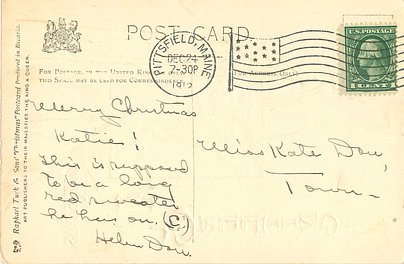 POST CARD
FOR POSTAGE, IN THE UNITED KINGDOM
THIS SPACE MAY BE USED FOR CORRESPONDENCE
(FOR ADDRESS ONLY)
PITTSFIELD, MAINE
DEC 24
7-30P
1912
U.S. POSTAGE
1 CENT
Raphael Tuck & Sons' "Christmas" Postcard
ART PUBLISHERS TO THEIR MAJESTIES THE KING & QUEEN.
Merry Christmas
Katie!
This is supposed
to be a long
red sweater
he has on. (C)
Helen Dow.
Miss Kate Dow,
Town.